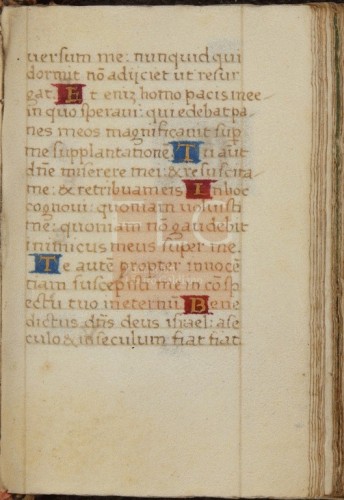 uersum me: nunquid qui
dormit nõ adijciet ut resur
gat. Et eniʒ homo pacis mee
in quo speraui: qui edebat pa
nes meos magnificauit sup
me supplantationẽ. Tu aut
dñe miserere mei: & resuscita
me: & retribuam eis. In hoc
cognoui: quoniam uoluisti
me: quoniam nõ gaudebit
inimicus meus super me.
Te autẽ propter innocẽ
tiam suscepisti me in cõsp
ectu tuo in eternũ. Bene
dictus dñs deus israel: a se
culo & in seculum fiat fiat.